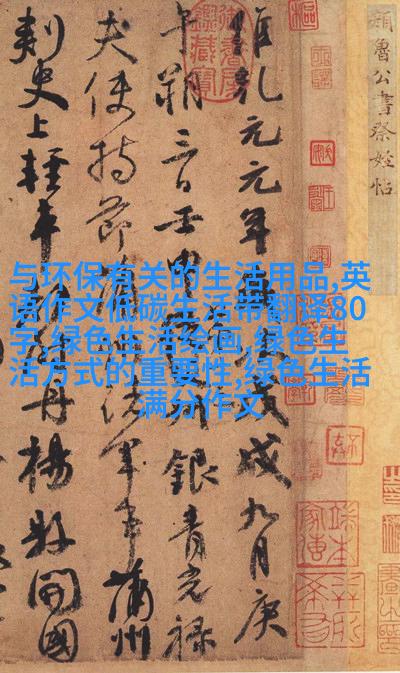 顏魯公書祭姪帖
維乾元元年歲次戊戌九月庚
午朔三日壬申銀青光祿
夫使持節蒲州諸軍事蒲州
刺史上輕車都尉丹楊縣開國
与环保有关的生活用品,英
语作文低碳生活带翻译80
字,绿色生活绘画,绿色生
活方式的重要性,绿色生活
满分作文